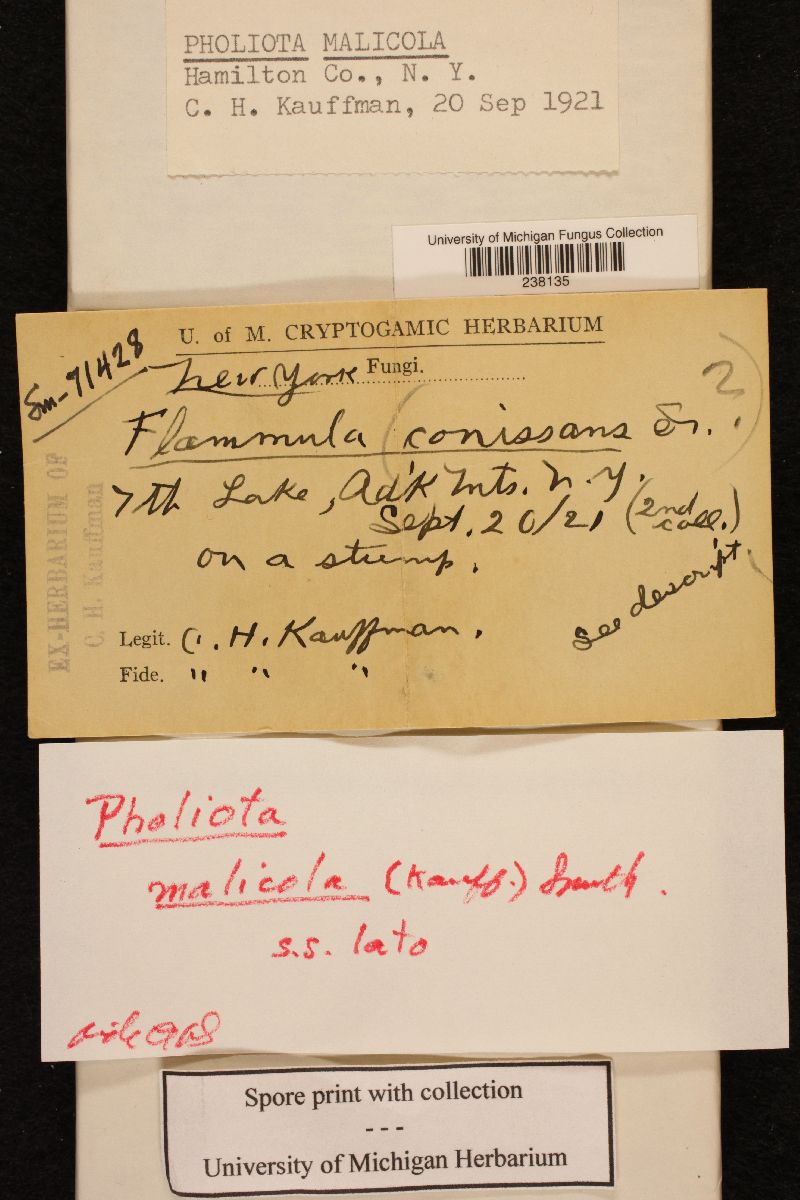 PHOLIOTA MALICOLA
Hamilton Co., N. Y.
C. H. Kauffman, 20 Sep 1921
University of Michigan Fungus Collection
238135
U. of M. CRYPTOGAMIC HERBARIUM
Sm-71428
New York Fungi.
2
Flammula (conissans Fr.
7th Lake, Ad'k Mts. N.Y.
Sept. 20/21 (2nd coll.)
on a stump.
See descript.
Legit. C. H. Kauffman.
Fide. " " "
EX-HERBARIUM OF
C. H. Kauffman
Pholiota
malicola (Kauff.) Smith.
s.s. lato
fide AHS
Spore print with collection
---
University of Michigan Herbarium